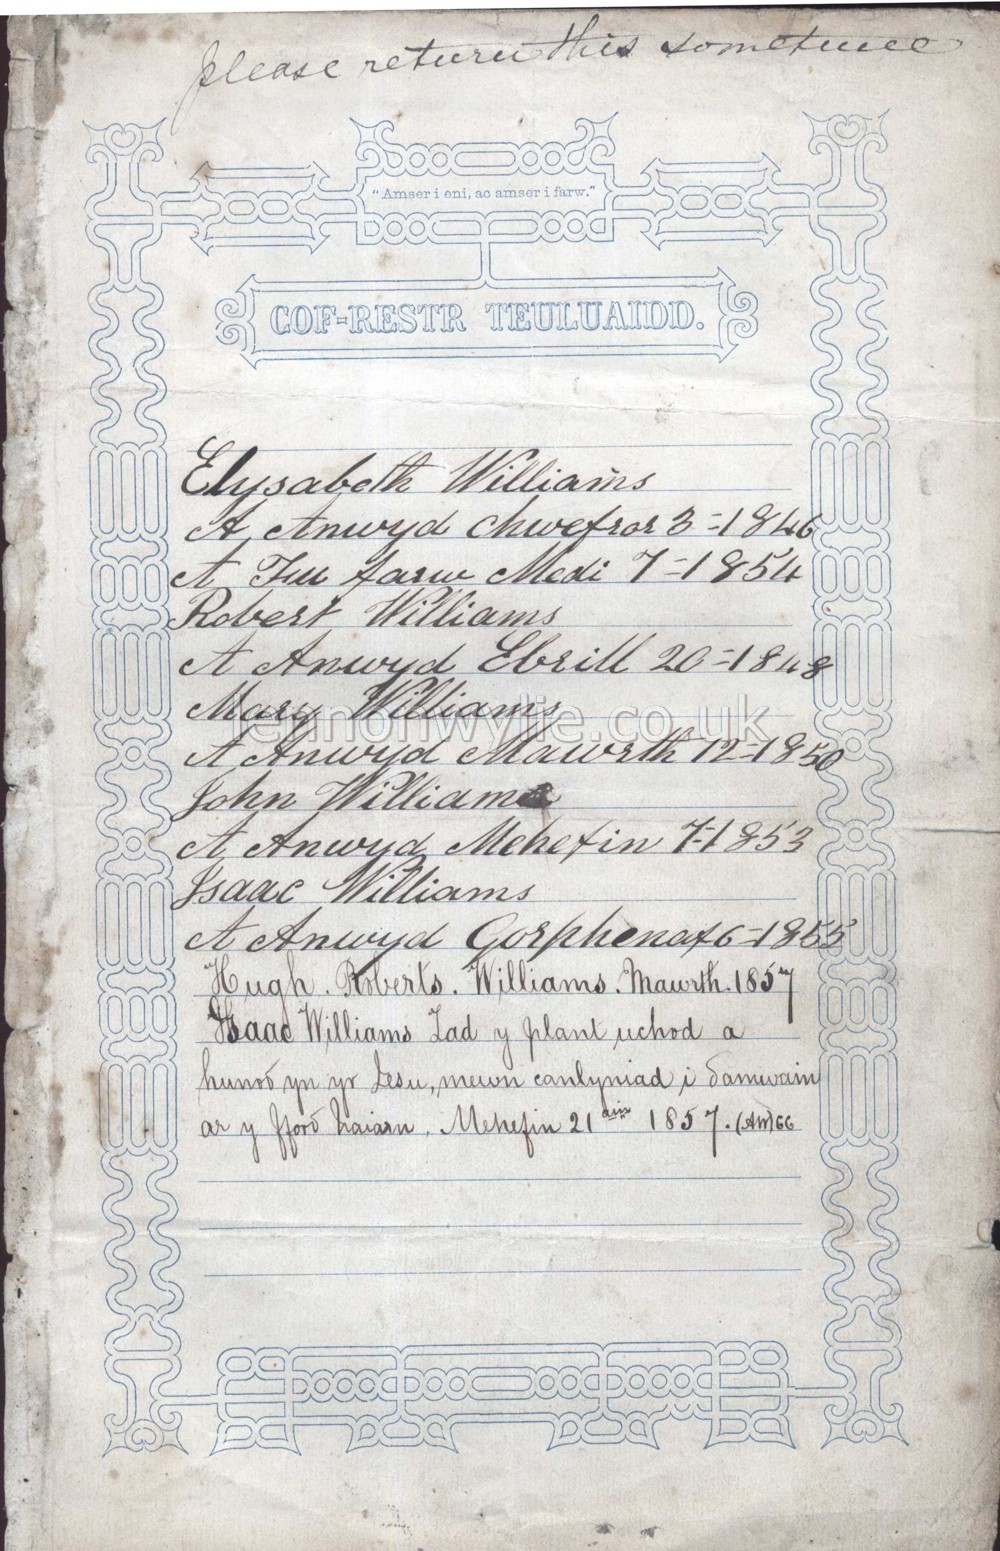 please return this sometime
"Amser i eni, ac amser i farw."
COF-RESTR TEULUAIDD.
Elysabeth Williams
A Anwyd Chwefror 3 = 1846
A Fu farw Medi 7 = 1854
Robert Williams
A Anwyd Ebrill 20 = 1848
Mary Williams
lennonwylie.co.uk
A Anwyd Mawrth 12 = 1850
John Williams
A Anwyd Mehefin 7 = 1853
Isaac Williams
A Anwyd Gorphenaf 6 = 1855
Hugh. Roberts. Williams. Mawrth. 1857
Isaac Williams Tad y plant uchod a
hunodd yn yr Iesu, mewn canlyniad i ddamwain
ar y ffordd haiarn. Mehefin 21ain 1857. (AW) 66